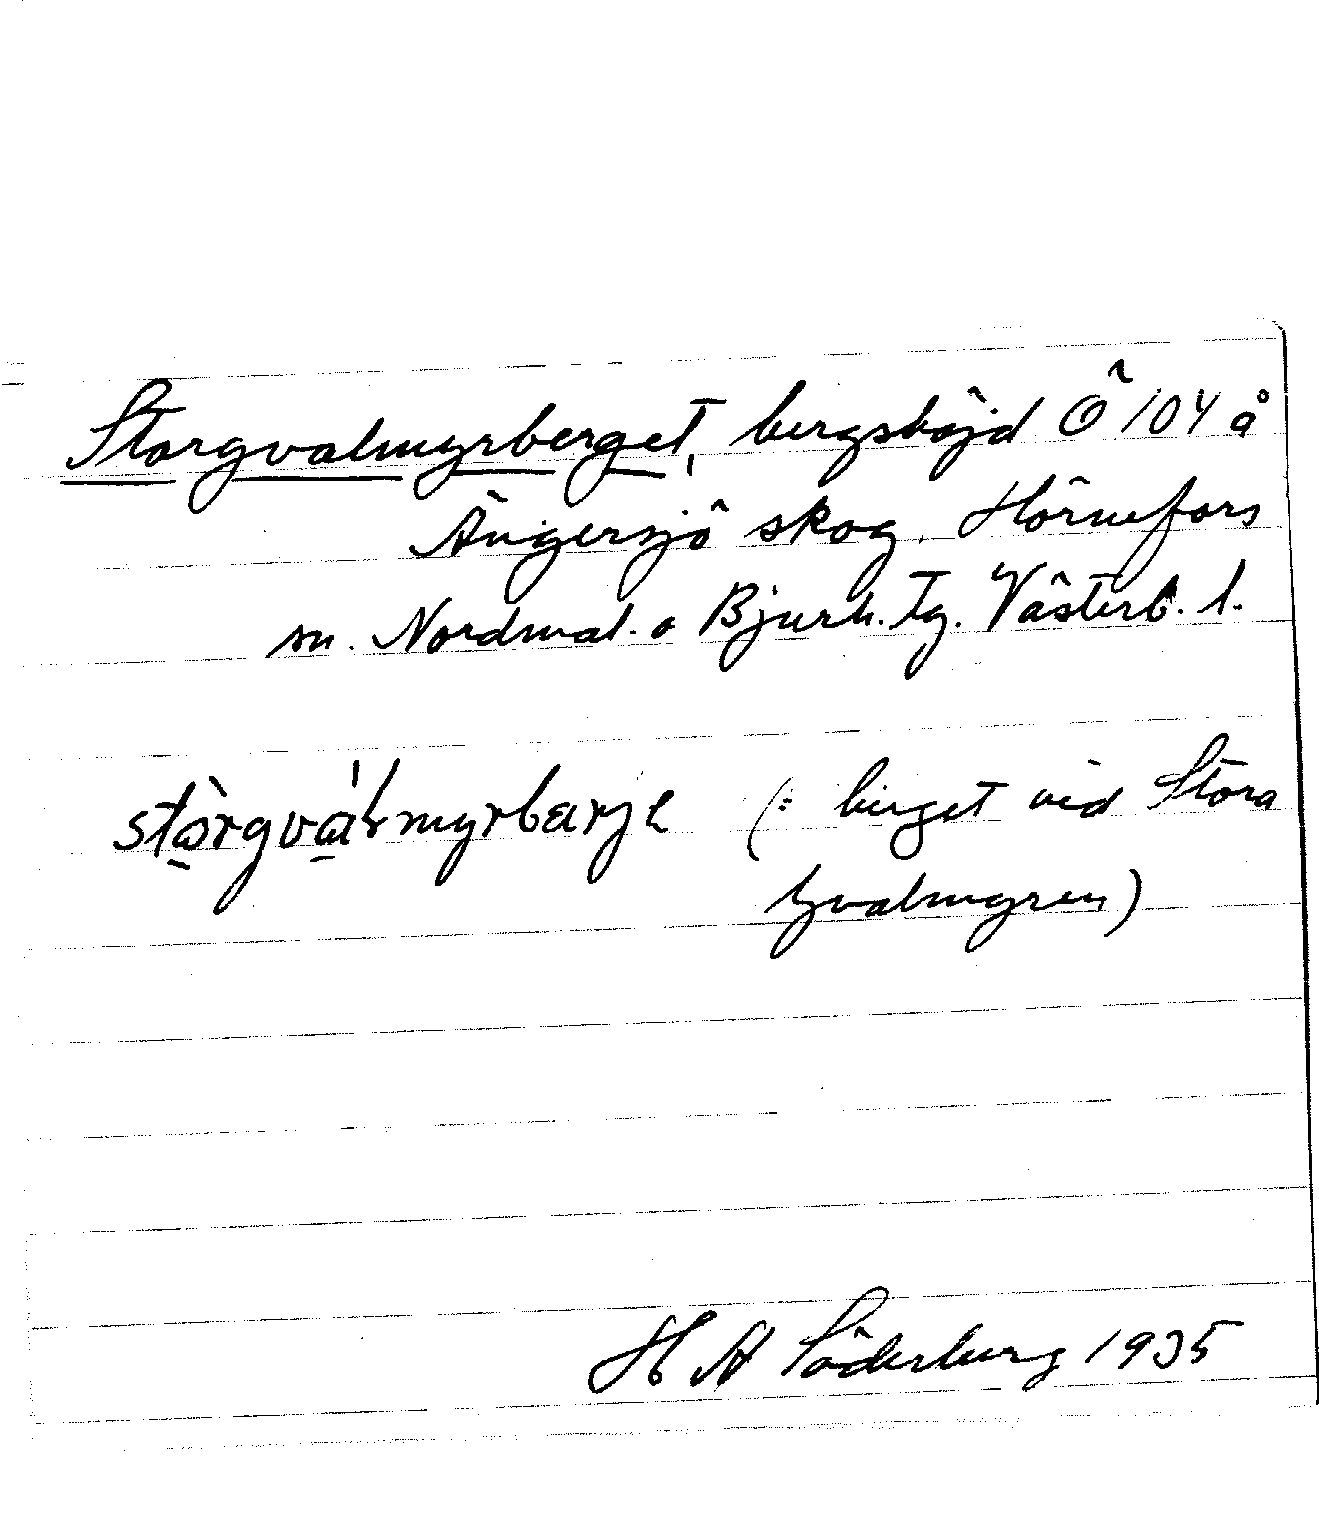 Storgvalmyrberget, bergshöjd Ö 104 å
Ängersjö skog, Hörnefors
sn. Nordmal. o Bjurh. tg. Västerb. l.
stòrgvàlmyrbærje (: berget vid Stora
Gvalmyren)
H A Söderberg 1935